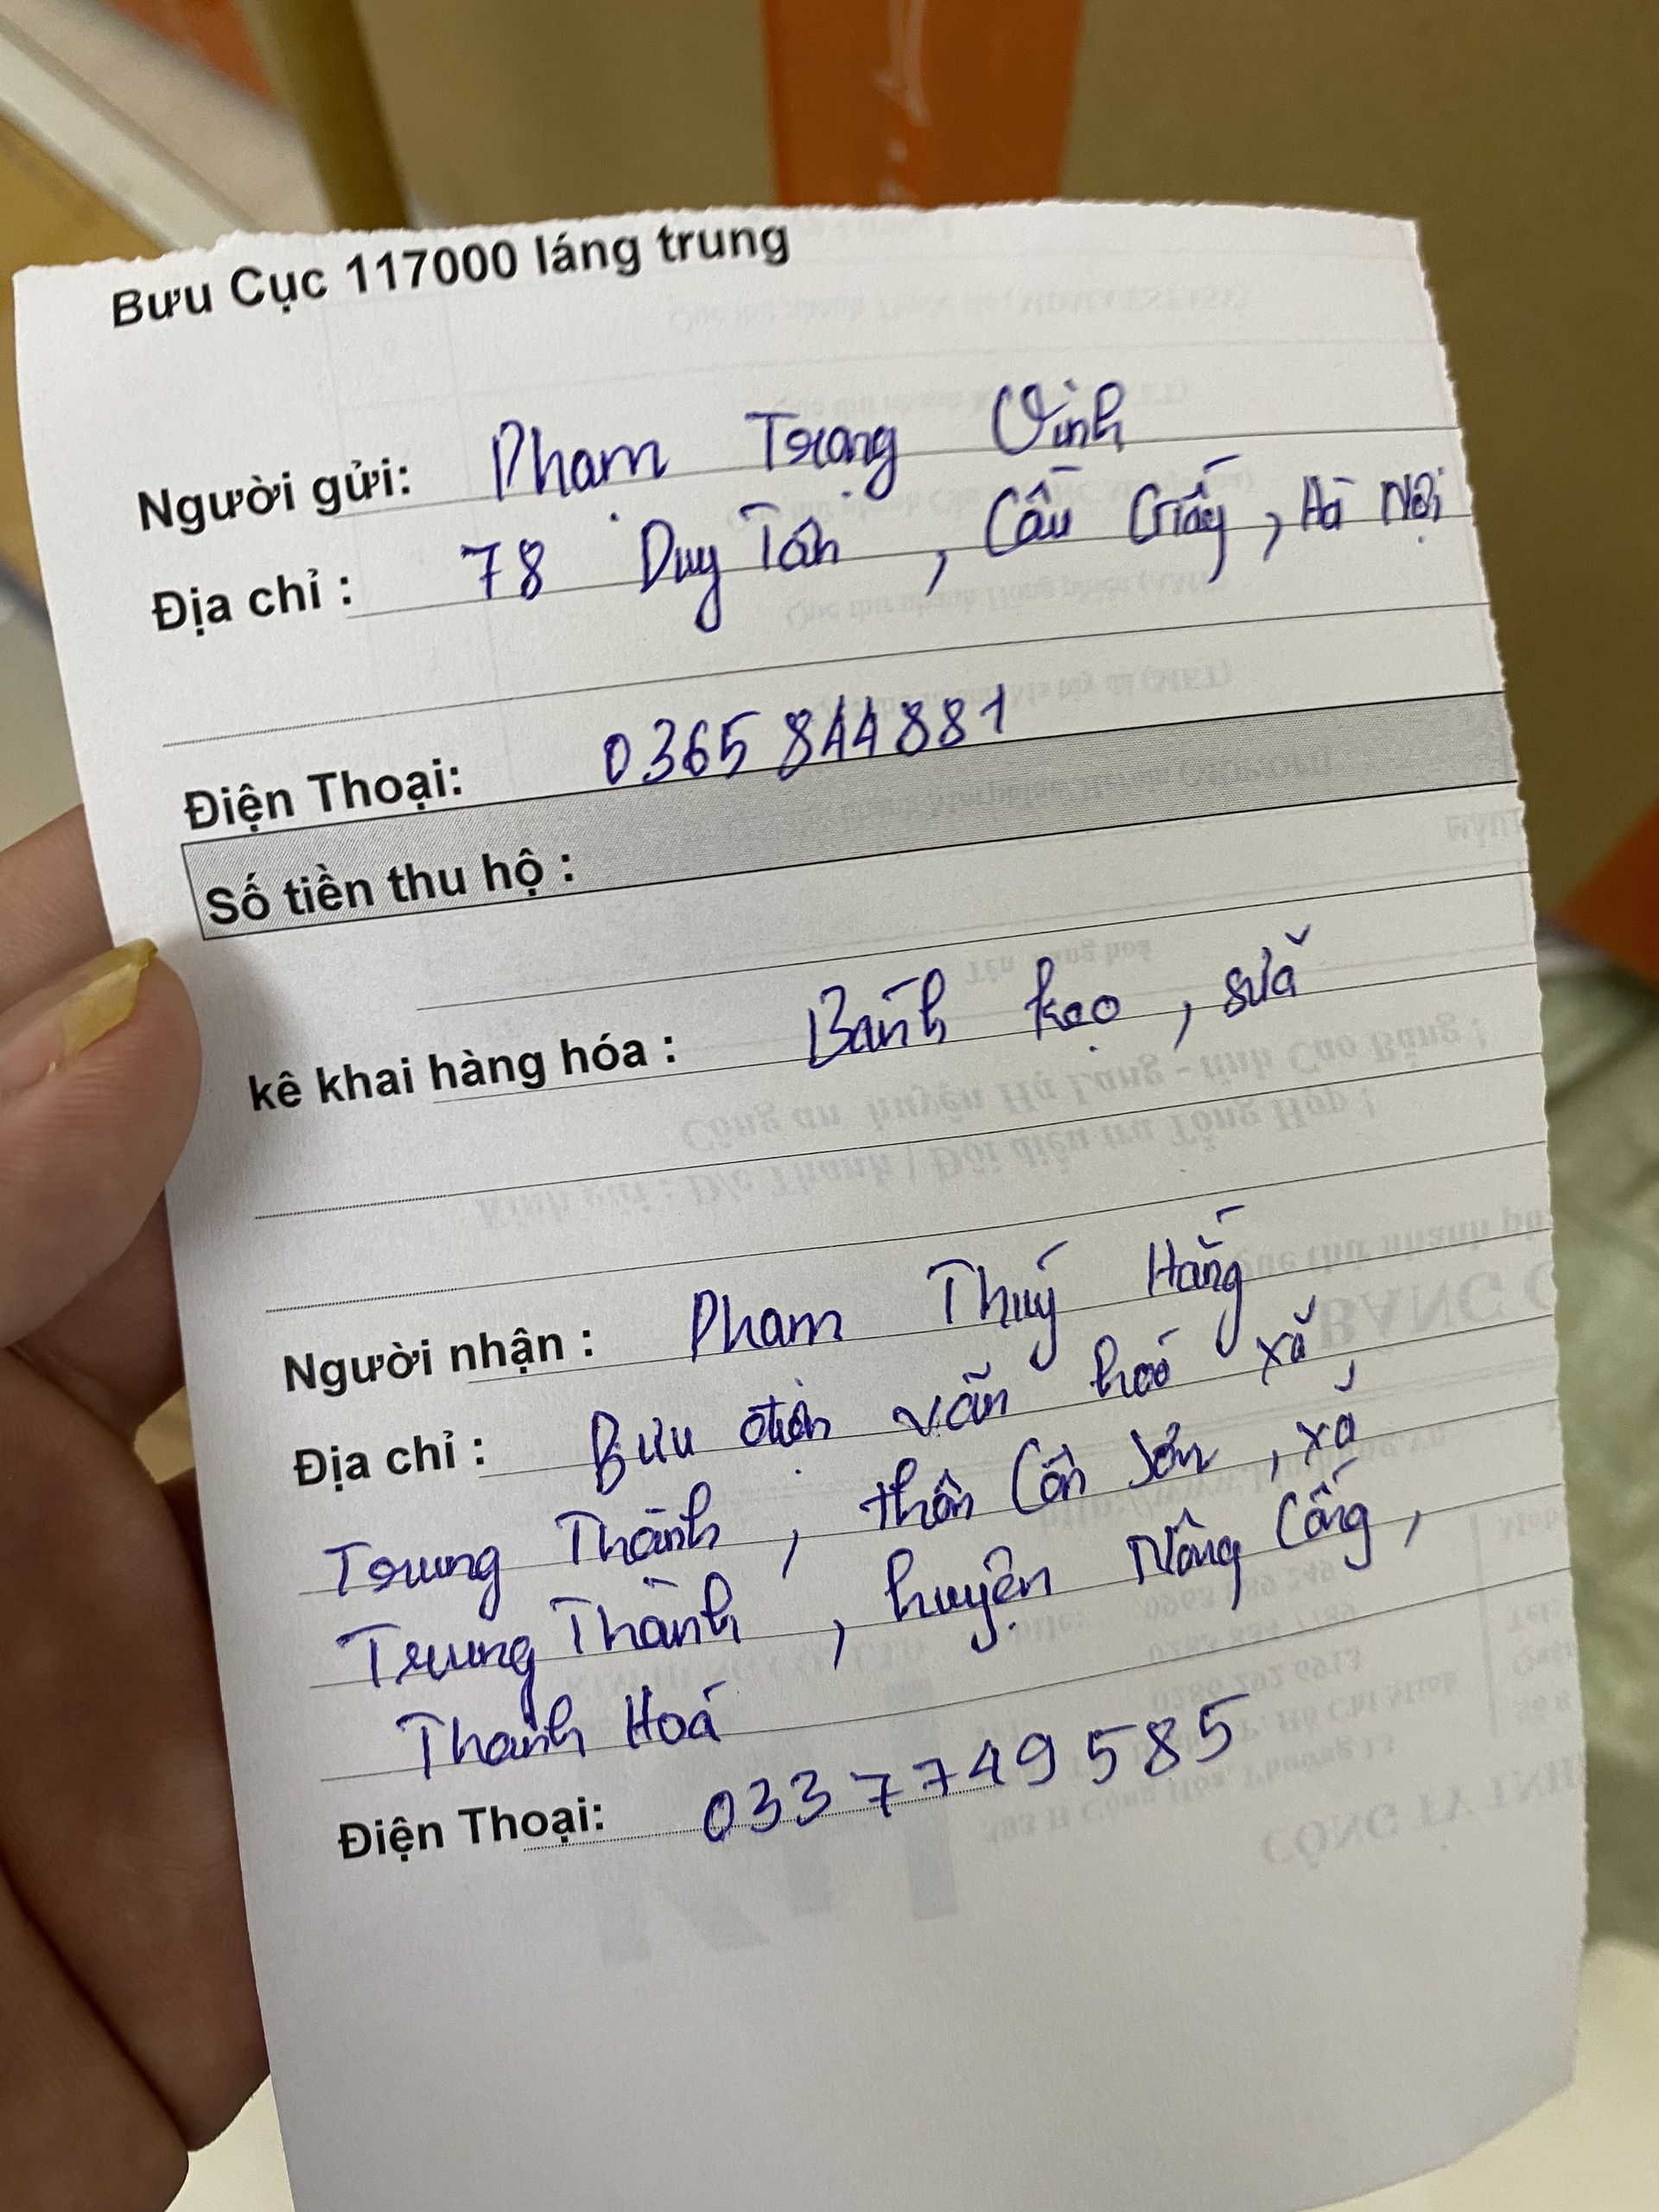 Bưu Cục 117000 láng trung
Người gửi: Phạm Trang Vinh
Địa chỉ : 78 Duy Tân , Cầu Giấy , Hà Nội
Điện Thoại: 0365 844 881
Số tiền thu hộ :
kê khai hàng hóa : Bánh kẹo , sữa
Người nhận : Phạm Thuý Hằng
Địa chỉ : Bưu điện văn hoá xã
Trung Thành , thôn Côn Sơn , xã
Trung Thành , huyện Nông Cống ,
Thanh Hoá
Điện Thoại: 033 7749 585